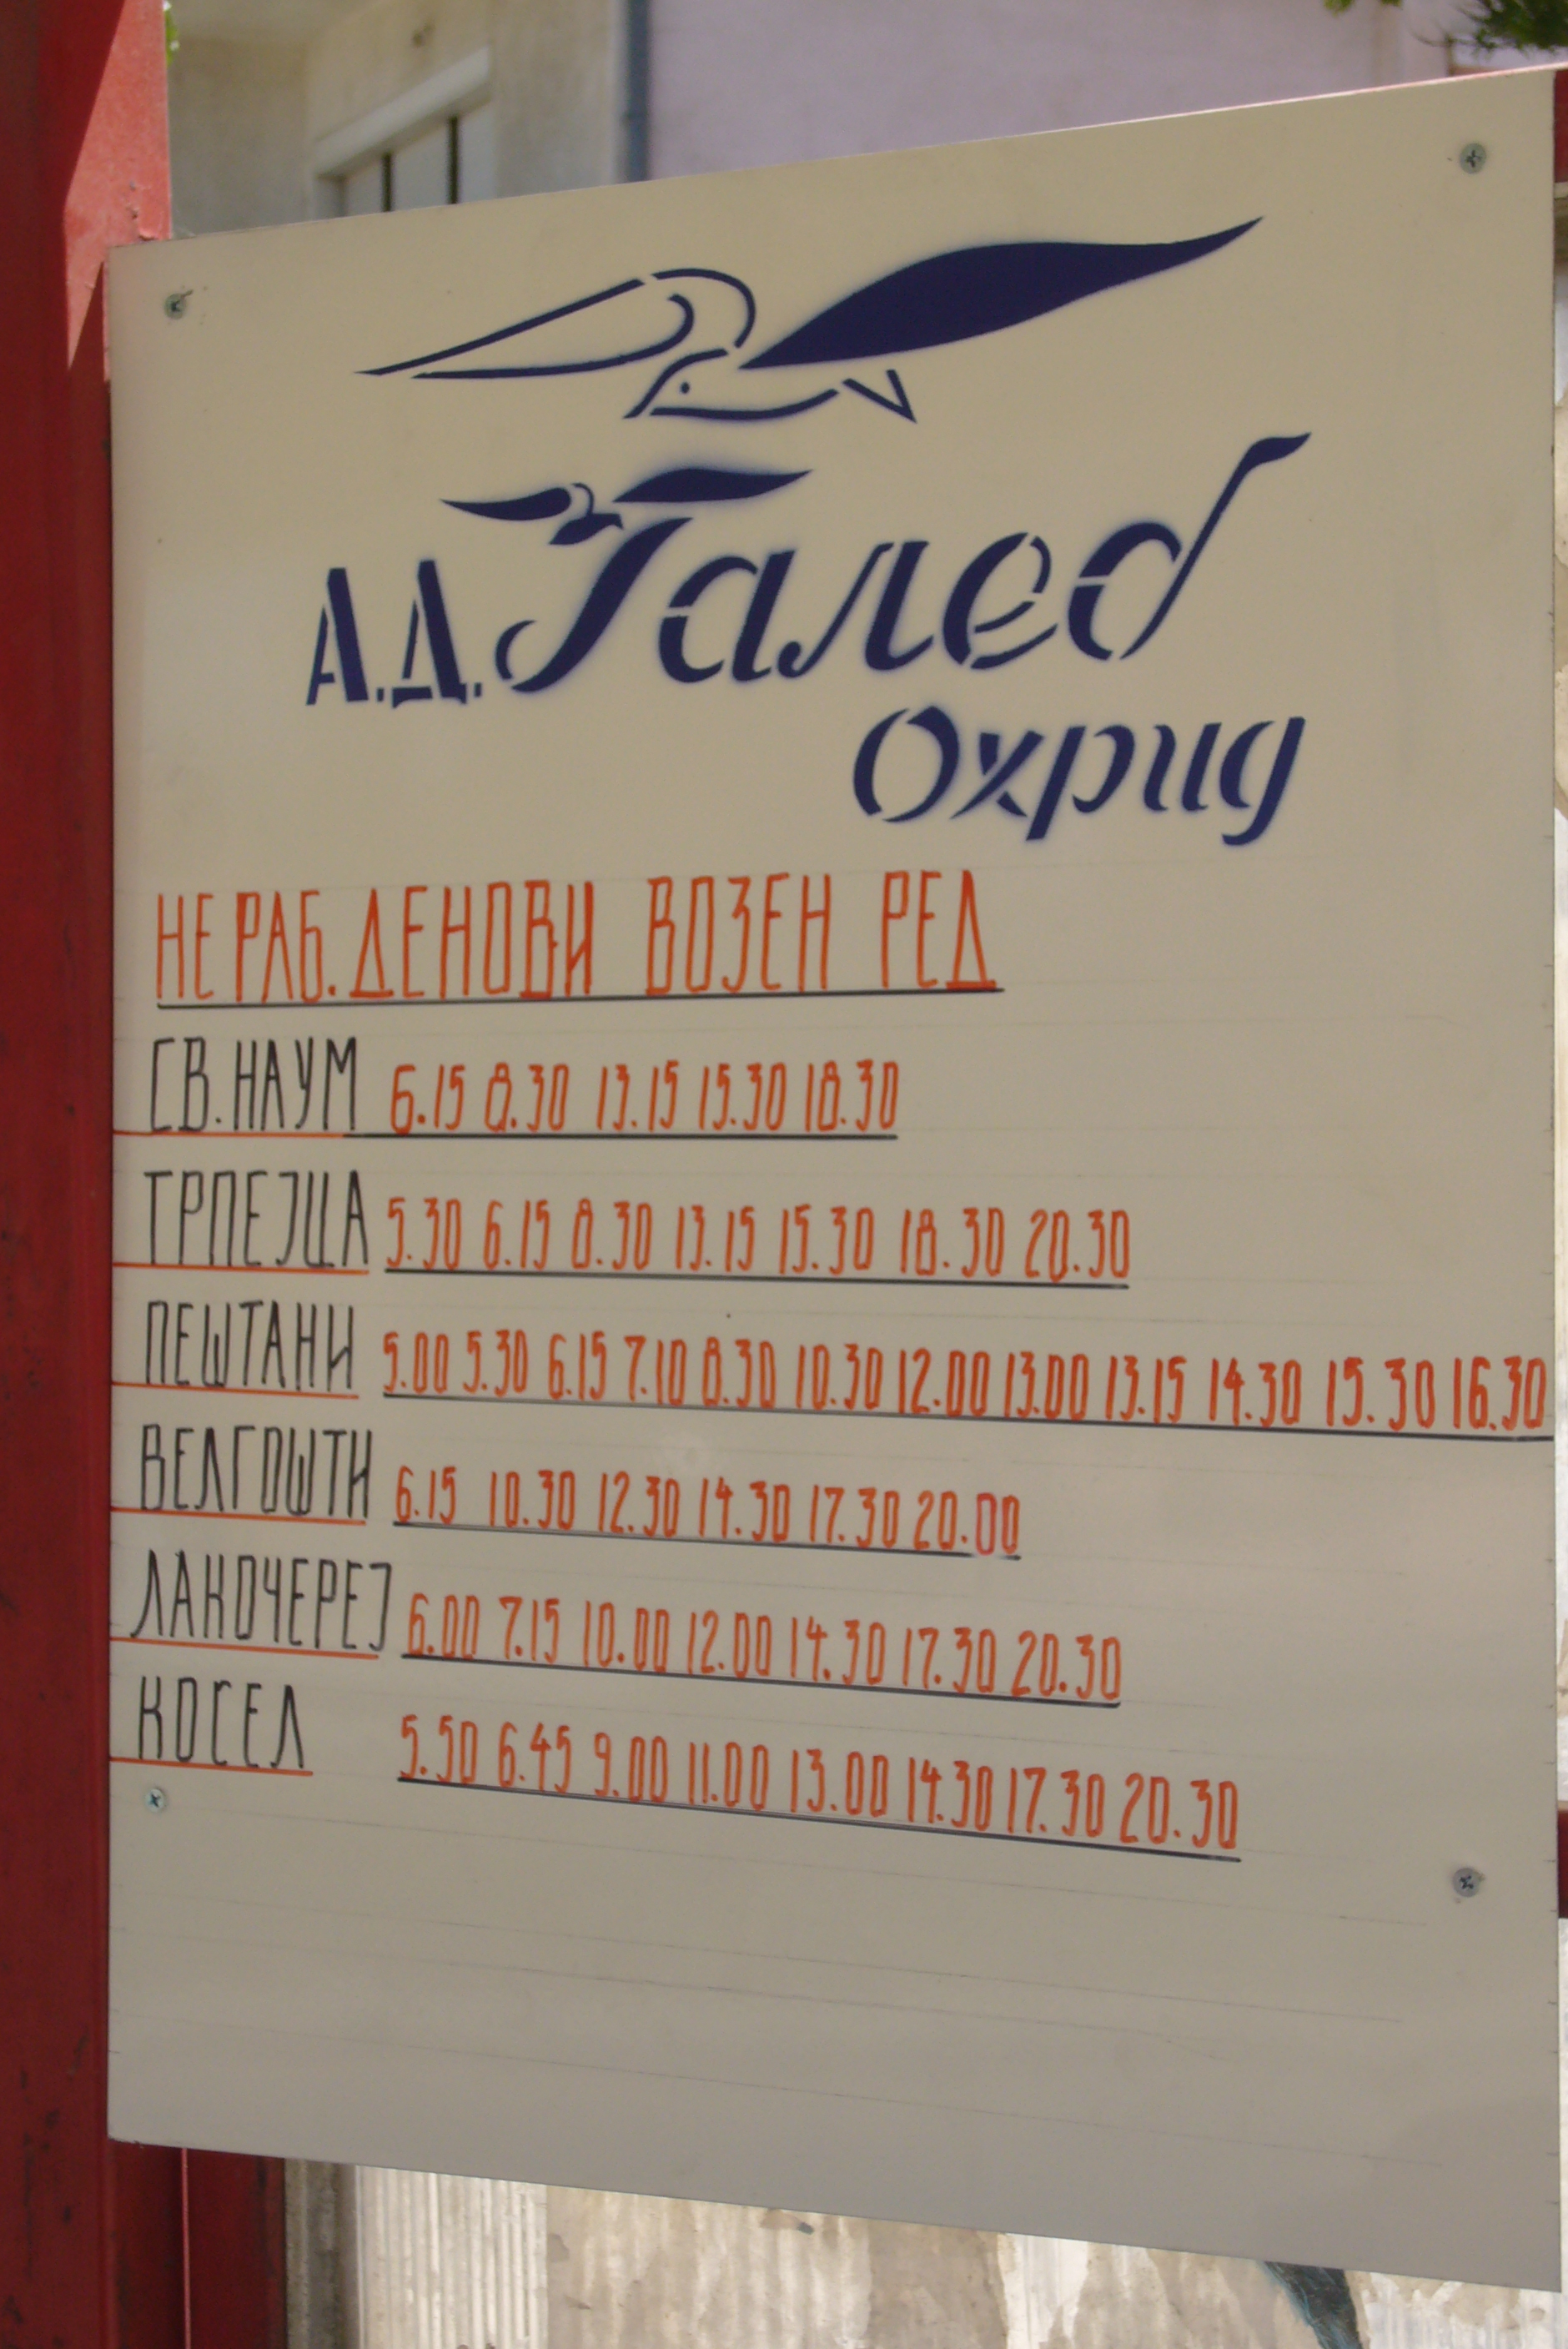 А.Д. Галеб
Охрид
НЕ РАБ. ДЕНОВИ ВОЗЕН РЕД
СВ. НАУМ 6.15 8.30 13.15 15.30 18.30
ТРПЕЈЦА 5.30 6.15 8.30 13.15 15.30 18.30 20.30
ПЕШТАНИ 5.00 5.30 6.15 7.10 8.30 10.30 12.00 13.00 13.15 14.30 15.30 16.30
ВЕЛГОШТИ 6.15 10.30 12.30 14.30 17.30 20.00
ЛАКОЧЕРЕЈ 6.00 7.15 10.00 12.00 14.30 17.30 20.30
КОСЕЛ 5.50 6.45 9.00 11.00 13.00 14.30 17.30 20.30